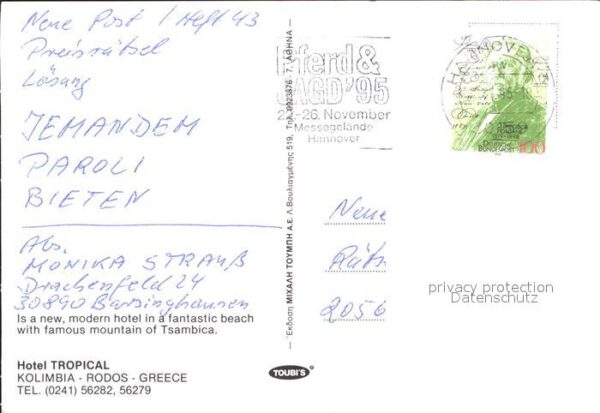 Neue Post / Heft 43
Preisrätsel
Lösung
JEMANDEM
PAROLI
BIETEN
Abs.
MONIKA STRAUß
Drachenfeld 24
30890 Barsinghausen
Is a new, modern hotel in a fantastic beach
with famous mountain of Tsambica.
Hotel TROPICAL
KOLIMBIA - RODOS - GREECE
TEL. (0241) 56282, 56279
Έκδοση ΜΙΧΑΛΗ ΤΟΥΜΠΗ Α.Ε. Λ. Βουλιαγμένης 519, Τηλ. 9923876 - 7, ΑΘΗΝΑ
TOUBI'S
Pferd &
JAGD '95
26. November
Messegelände
Hannover
HANNOVER
100
Neue
Räts
2056
privacy protection
Datenschutz